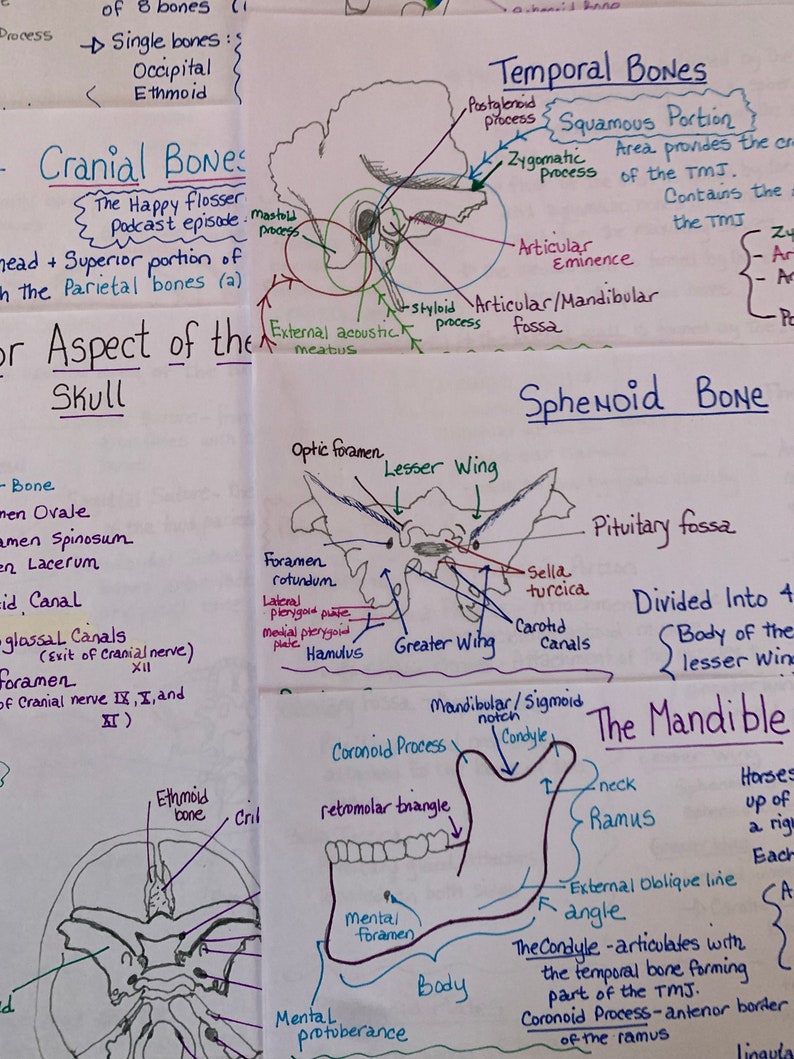 of 8 bones
Process
→ Single bones:
Occipital
Ethmoid
Cranial Bones
The Happy flosser
Podcast episode
head + Superior portion of
the Parietal bones (a)
Aspect of the
Skull
Bone
Ovale
Spinosum
Lacerum
Canal
glossal Canals
(Exit of Cranial nerve)
XII
foramen
of Cranial nerve IX, X, and
XI)
Ethmoid
bone
Temporal Bones
Postglenoid
process
Squamous Portion
Area provides the
of the TMJ.
Contains the
the TMJ
Zygomatic
process
Mastoid
process
Articular
Eminence
Styloid
process
Articular/Mandibular
fossa
External acoustic
meatus
Sphenoid Bone
Optic foramen
Lesser Wing
Pituitary fossa
Foramen
rotundum
Sella
turcica
Lateral
pterygoid plate
Medial pterygoid
plate
Hamulus
Greater Wing
Carotid
Canals
Divided Into 4
Body of the
lesser
The Mandible
Mandibular/Sigmoid
notch
Coronoid Process
Condyle
neck
retromolar triangle
Ramus
External Oblique line
angle
Mental
foramen
Body
Mental
protoberance
up of
Each
The Condyle - articulates with
the temporal bone forming
part of the TMJ.
Coronoid Process - anterior border
of the ramus